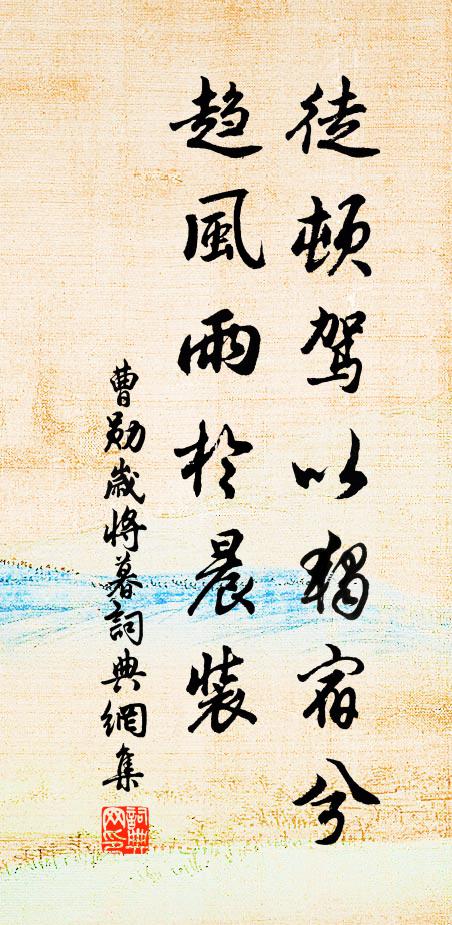 徒頓駕以獨宿兮
趋風雨於晨裝
曹勛歲將暮詞典網集
詞典網印